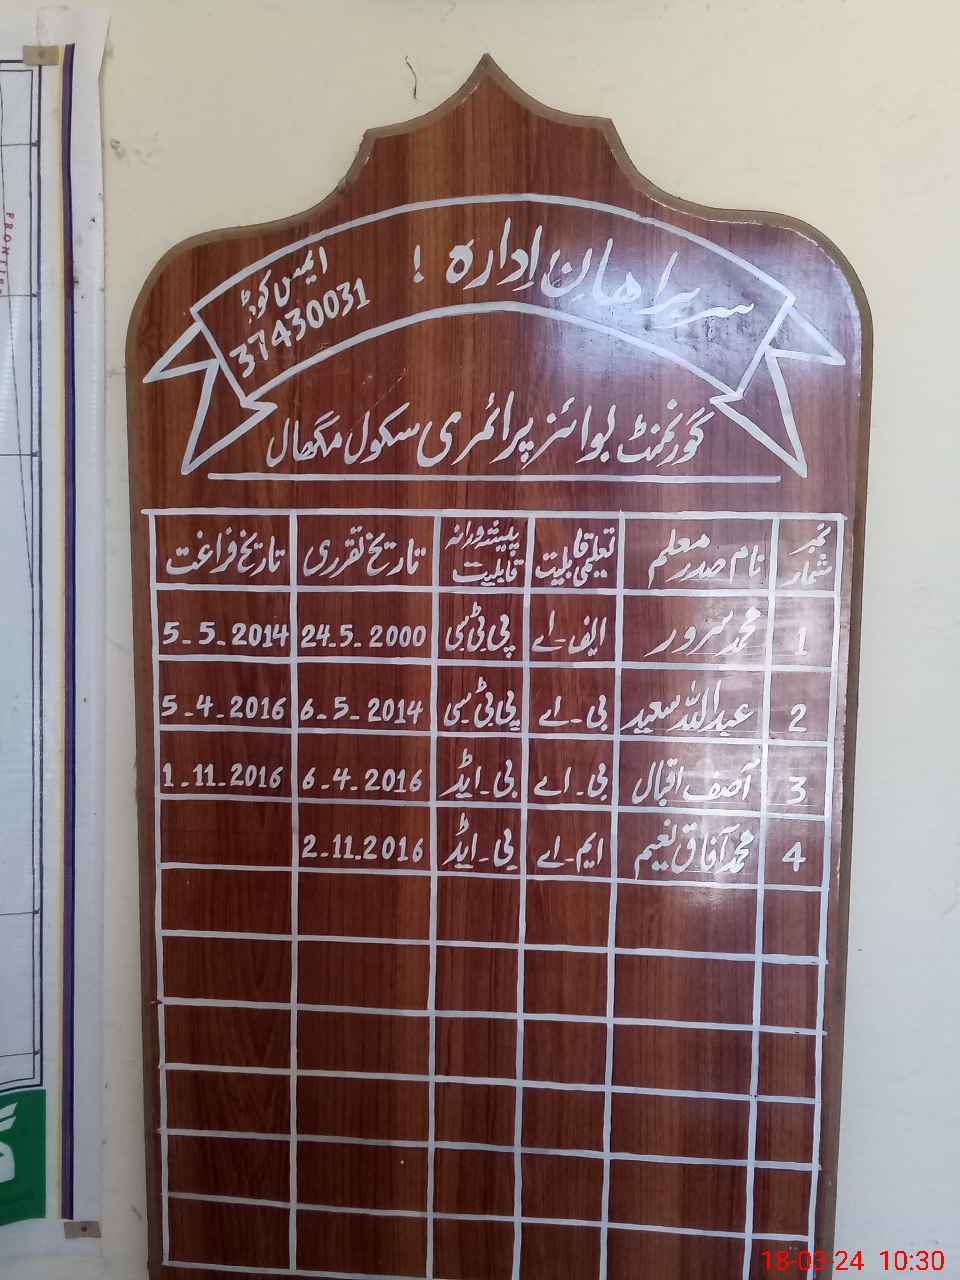 سربراهانِ اِداره !
ایمس کوڈ
37430031
گورنمنٹ بوائز پرائمری سکول مگھال
نمبر شمار نام صدر معلم تعلیمی قابلیت پیشہ ورانہ قابلیت تاریخ تقرری تاریخ فراغت
1 محمد سرور ایف۔اے پی ٹی سی 24.5.2000 5-5-2014
2 عبداللہ سعید بی۔اے پی ٹی سی 6-5-2014 5-4-2016
3 آصف اقبال بی۔اے بی۔ایڈ 6-4-2016 1-11-2016
4 محمد آفاق نعیم ایم۔اے بی۔ایڈ 2-11-2016
FRONTIER
18-03-24 10:30